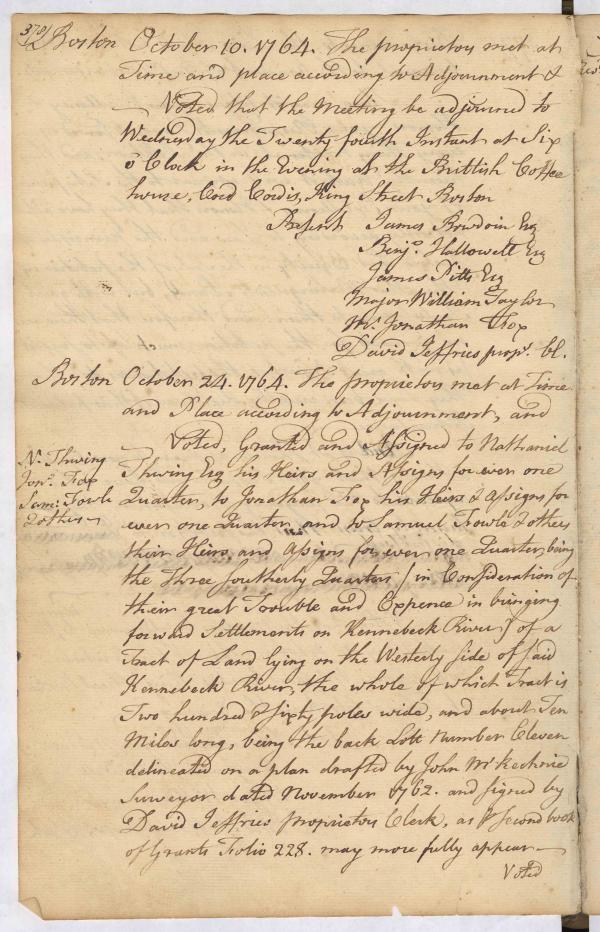 378/
Boston October 10. 1764. The proprietors met at
Time and place according to Adjournment &
— Voted that the Meeting be adjourned to
Wednesday the Twenty fourth Instant at Six
o Clock in the Evening at the Brittish Coffee
house, Cord Cordis, King Street Boston
Present James Bowdoin Esq
Benjᵃ. Hallowell Esq
James Pitts Esq
Major William Taylor
Mʳ. Jonathan Fox
David Jeffries propʳ. Cl.
Boston October 24. 1764. The proprietors met at Time
and Place according to Adjournment, and
— Voted, Granted and Assigned to Nathaniel
Nˡ. Thwing
Jonᵃ. Fox
Samˡ. Fowle
& others —
Thwing Esq his Heirs and Assigns for ever one
Quarter, to Jonathan Fox his Heirs & Assigns for
ever one Quarter, and to Samuel Fowle & others
their Heirs and Assigns for ever one Quarter being
the Three Southerly Quarters / in Consideration of
their great Trouble and Expence in bringing
forward Settlements on Kennebeck River / of a
Tract of Land lying on the Westerly side of said
Kennebeck River, the whole of which Tract is
Two hundred & sixty poles wide, and about Ten
Miles long, being the back Lott Number Eleven
delineated on a plan drafted by John McKechnie
Surveyor dated November 1762. and signed by
David Jeffries Proprietors Clerk, as ⅌ Second book
of Grants Folio 228. may more fully appear —
Voted